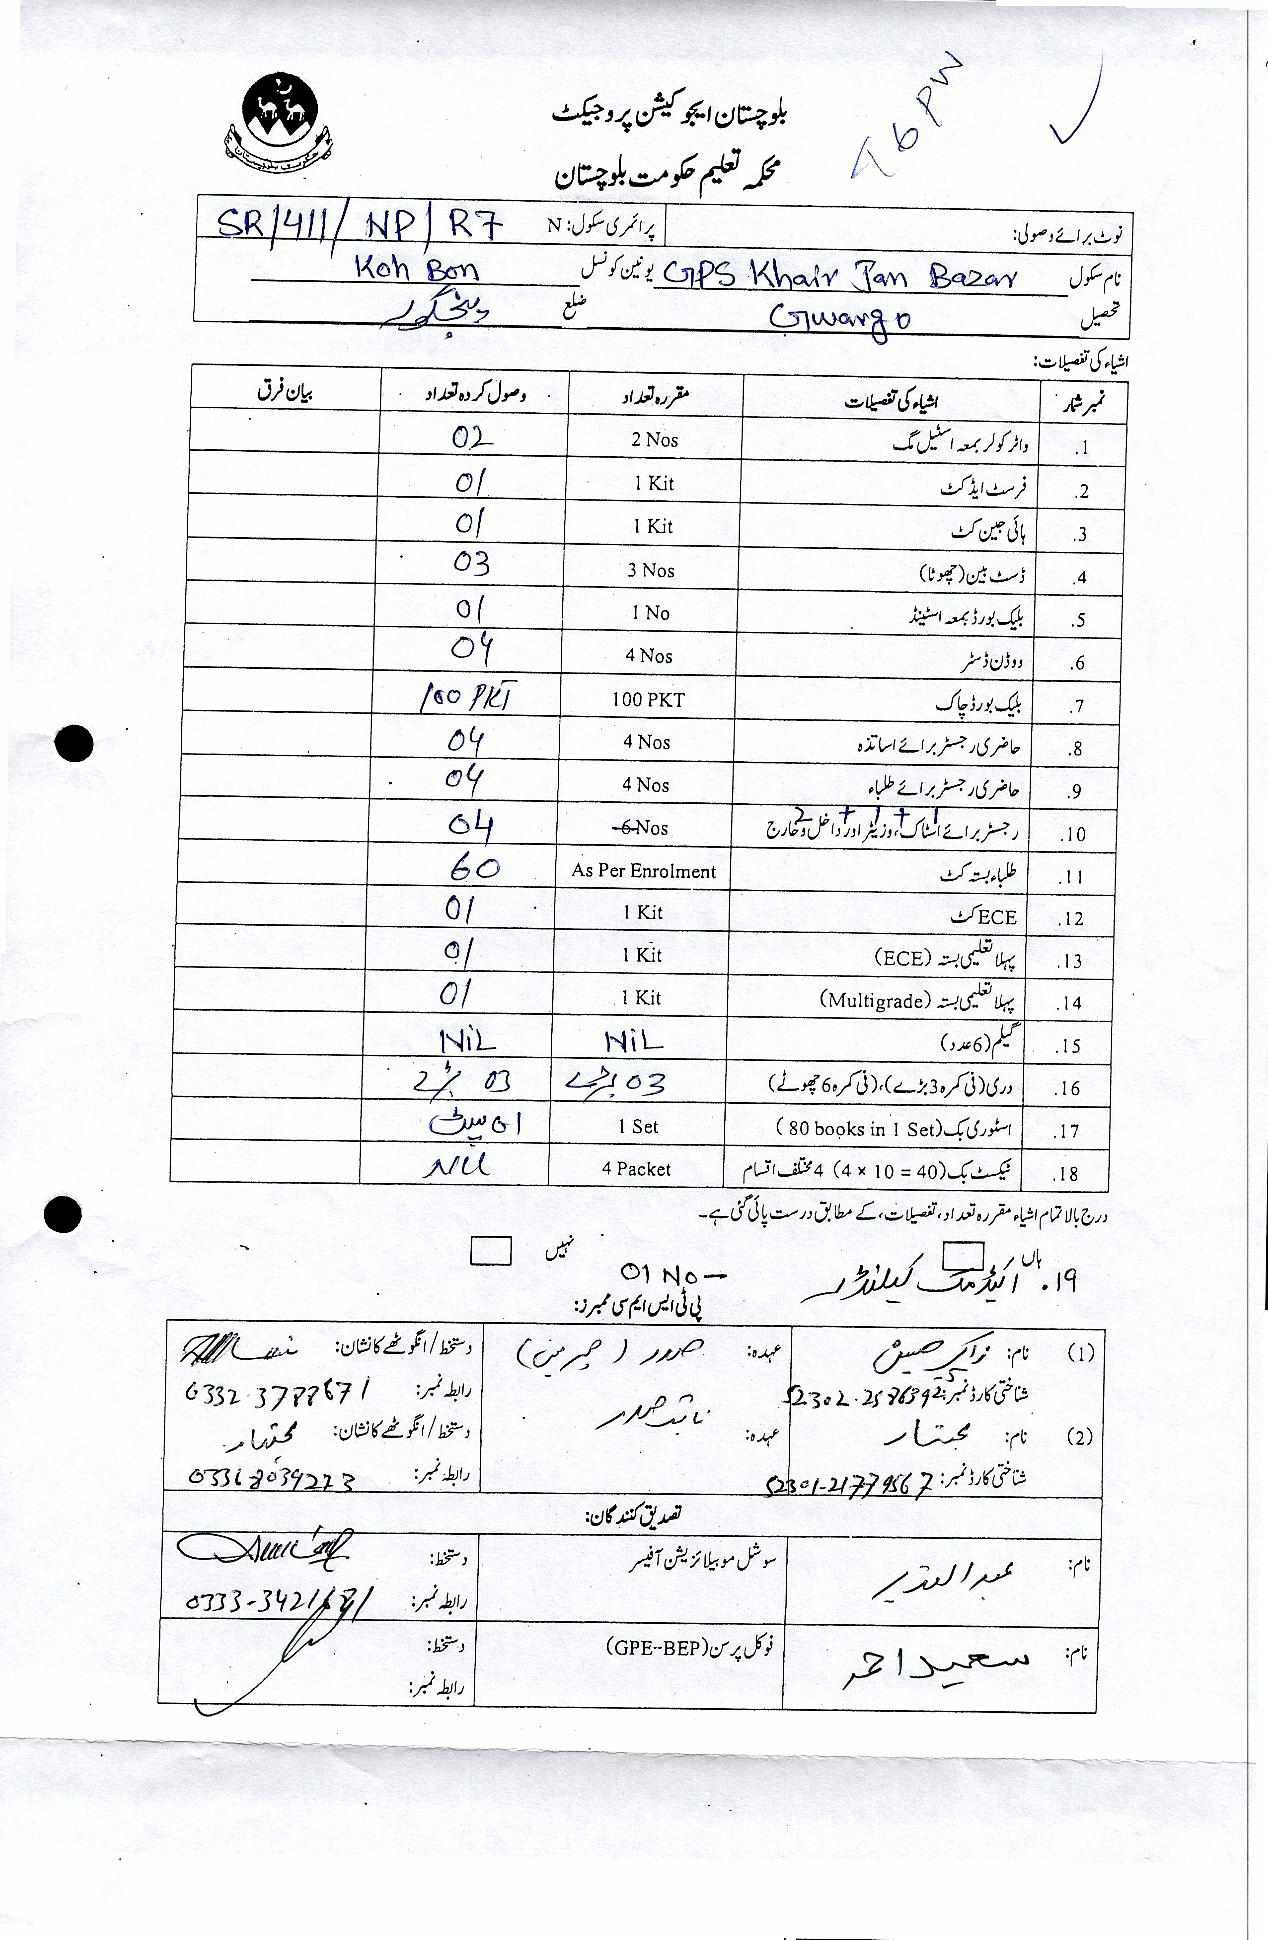 بلوچستان ایجوکیشن پروجیکٹ
محکمہ تعلیم حکومت بلوچستان
نوٹ برائے وصولی: پرائمری سکول: N SR/411/NP/R7
نام سکول GPS Khair Jan Bazar یونین کونسل Koh Bon
تحصیل Gwargo ضلع پنجگور
اشیاء کی تفصیلات:
نمبر شمار اشیاء کی تفصیلات مقررہ تعداد وصول کردہ تعداد بیان فرق
1. واٹر کولر بمعہ اسٹیل مگ 2 Nos 02
2. فرسٹ ایڈ کٹ 1 Kit 01
3. ہائی جین کٹ 1 Kit 01
4. ڈسٹ بین (چھوٹا) 3 Nos 03
5. بلیک بورڈ بمعہ اسٹینڈ 1 No 01
6. ووڈن ڈسٹر 4 Nos 04
7. بلیک بورڈ چاک 100 PKT 100 PKT
8. حاضری رجسٹر برائے اساتذہ 4 Nos 04
9. حاضری رجسٹر برائے طلباء 4 Nos 04
10. رجسٹر برائے اسٹاک، وزیٹر اور داخل و خارج 6 Nos 04
11. طلباء بستہ کٹ As Per Enrolment 60
12. ECE کٹ 1 Kit 01
13. پہلا تعلیمی بستہ (ECE) 1 Kit 01
14. پہلا تعلیمی بستہ (Multigrade) 1 Kit 01
15. گیلم (6 عدد) NiL NiL
16. دری (فی کمرہ 3 بڑے)، (فی کمرہ 6 چھوٹے) 03 بڑے 03 بڑے
17. اسٹوری بک (80 books in 1 Set) 1 Set 01 سیٹ
18. ٹیکسٹ بک (4 x 10 = 40) 4 مختلف اقسام 4 Packet Nil
درج بالا تمام اشیاء مقررہ تعداد، تفصیلات، کے مطابق درست پائی گئی ہے۔
ہاں نہیں
۱۹. اکیڈمک کیلنڈر 01 No
پی ٹی ایس ایم سی ممبرز:
(1) نام: ذاکر حسین عہدہ: صدر (چیرمین) دستخط/انگوٹھے کا نشان:
شناختی کارڈ نمبر: رابطہ نمبر: 0332-3788671
(2) نام: مختار عہدہ: نائب صدر دستخط/انگوٹھے کا نشان: مختار
شناختی کارڈ نمبر: رابطہ نمبر:
تصدیق کنندگان:
نام: سوشل موبیلائزیشن آفیسر دستخط:
رابطہ نمبر:
نام: سعید احمد فوکل پرسن (GPE-BEP) دستخط:
رابطہ نمبر: